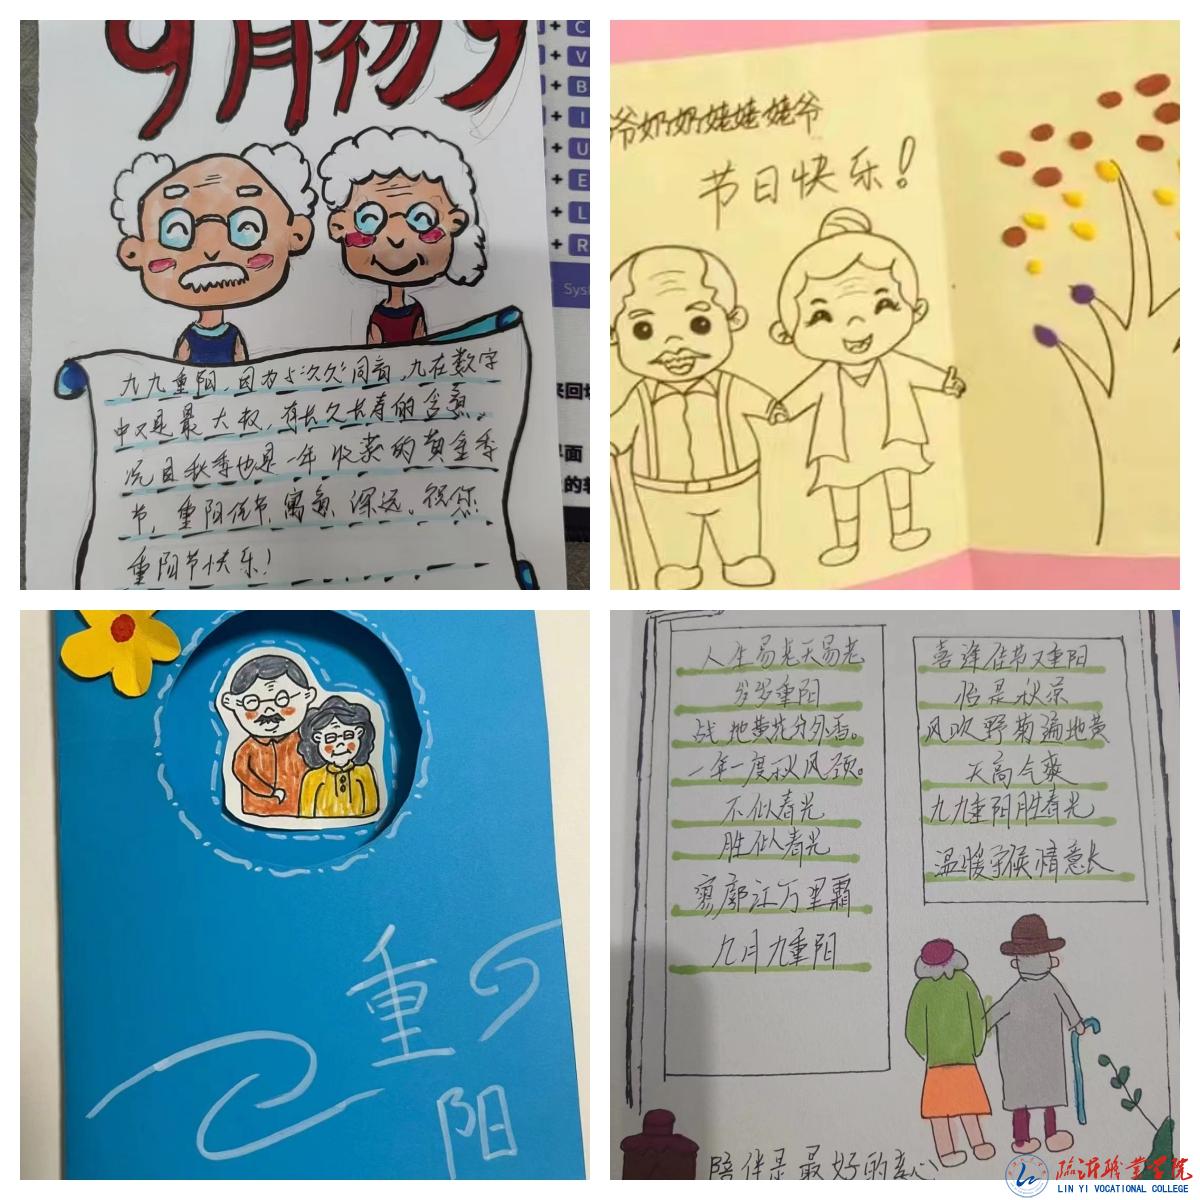 9月初9
九九重阳，因为与"久久"同音，九在数字
中又是最大数，有长久长寿的含意。
况且秋季也是一年收获的黄金季
节，重阳佳节，寓意深远。祝您
重阳节快乐！
C
V
B
I
U
E
L
R
Syst
来回
界面
的
爷奶奶姥姥姥爷
节日快乐！
重
阳
人生易老天易老
岁岁重阳
战地黄花分外香。
一年一度秋风颈。
不似春光
胜似春光
寥廓江万里霜
九月九重阳
喜逢佳节又重阳
恰是秋凉
风吹野菊遍地黄
天高气爽
九九重阳胜春光
温暖守候情意长
陪伴是最好的孝心
临沂职业学院
LIN YI VOCATIONAL COLLEGE